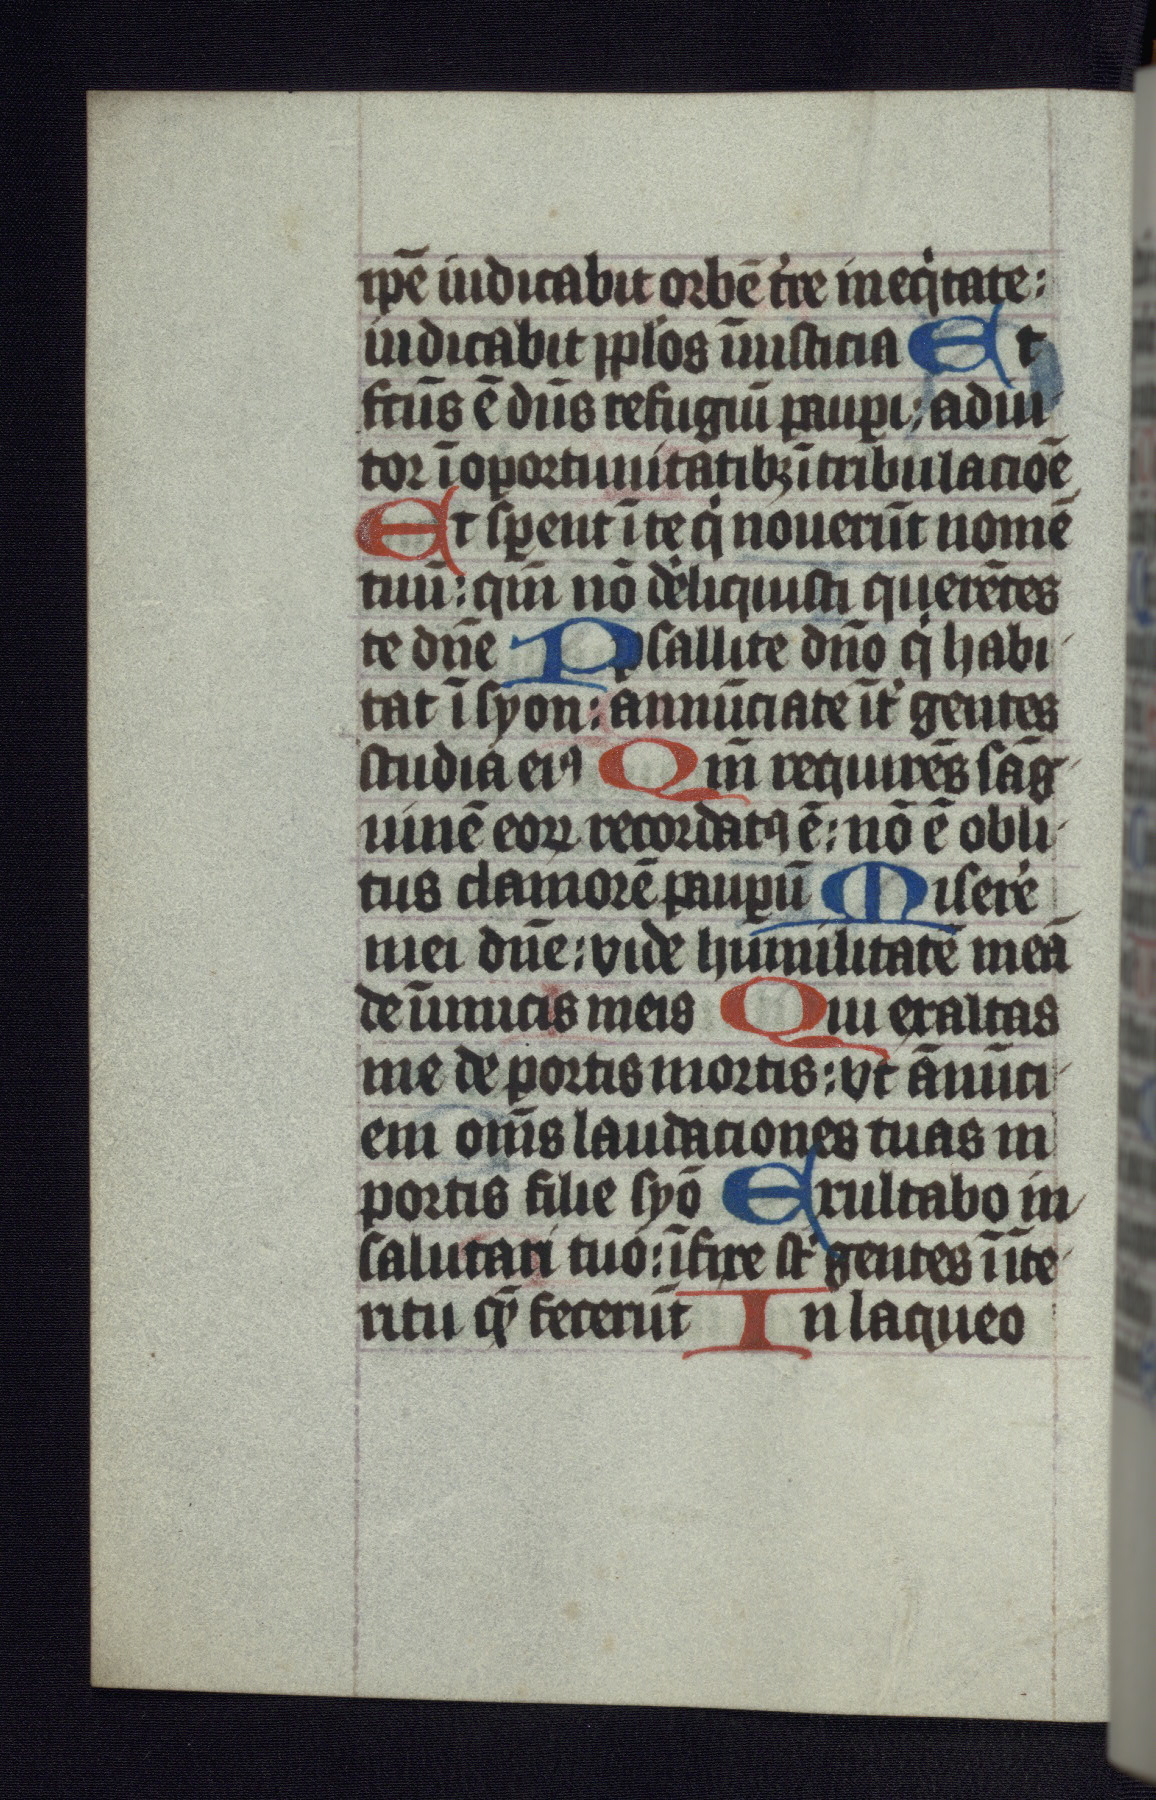 ip̄e iudicabit orbē tr̄re in eq̇tate :
iudicabit ppl̄os ī iusticia Et
fcūs ē dn̄s refugiū paup̱i : adiu
tor ī oportunitatibꝫ ī tribulacioē
Et sp̱ent ī te q̇ nouerūt nomē
tuū : qm̄ nō d̓eliquisti querētes
te dn̄e Psallite dn̄o q̇ habi
tat ī syon : annūciate īt̓ gentes
studia eiꝰ Qm̄ requirēs sāg
uinē eoꝝ recordatꝰ ē : nō ē obli
tus clamorē paup̱ū Miser̓e
mei dn̄e : vide humilitatē meā
de īimicis meis Qui exaltas
me de portis mortis : vt ānūci
em om̄s laudationes tuas in
portis filie syō Exultabo in
salutari tuo : īfixe st̓ gentes ī īte
ritu qꝫ fecerūt In laqueo